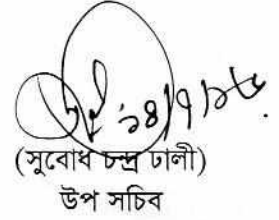 ১৪/৭/১৫
(সুবোধ চন্দ্র ঢালী)
উপ সচিব